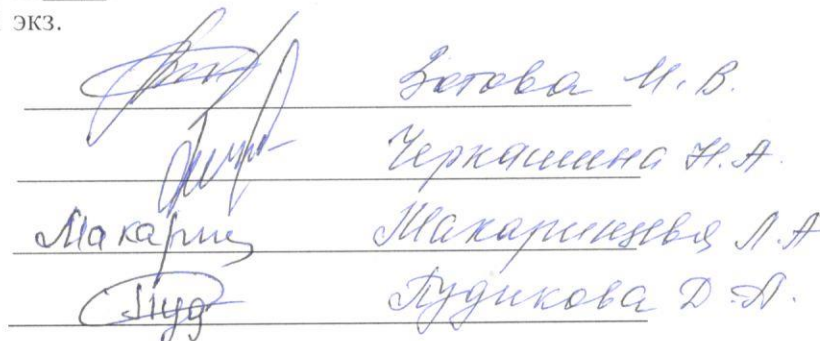 экз.
Зотова И. В.
Черкашина Н. А.
Макарин Макаринцева Л. А
Пуд Пудикова Д. А.